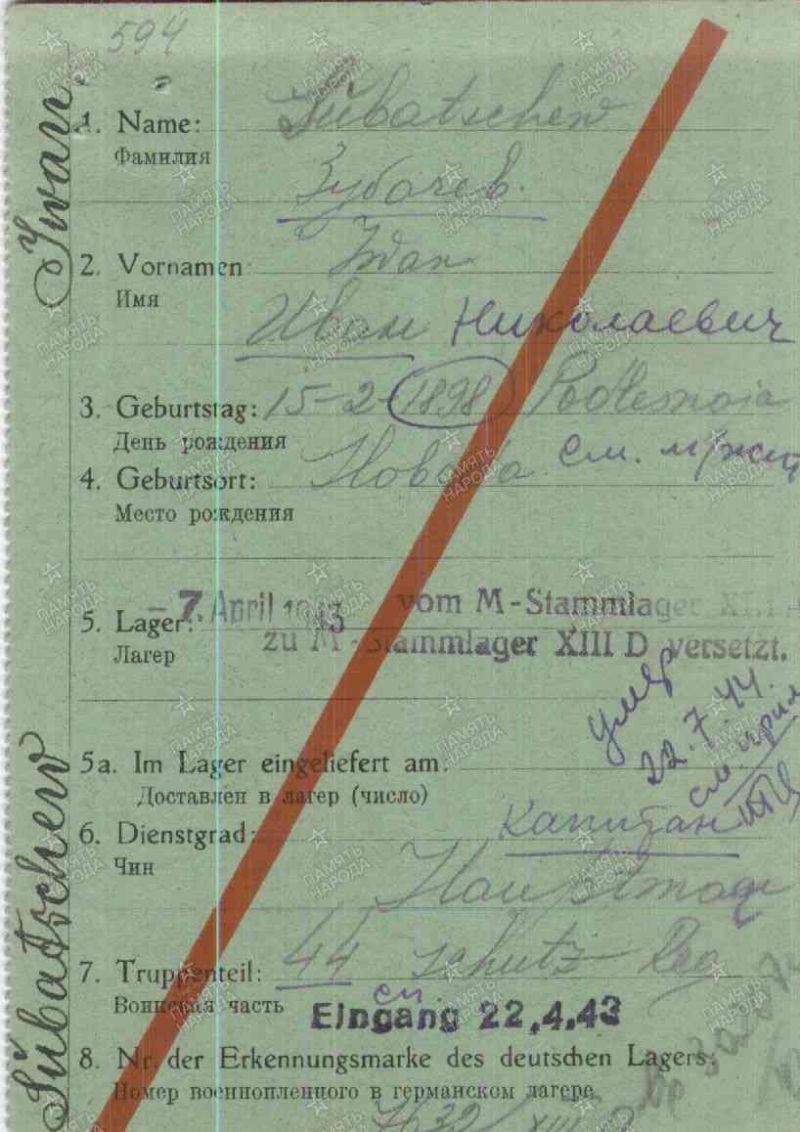 594
1. Name: Subatschew
Фамилия
Зубачев.
2. Vornamen: Iwan
Имя
Иван Николаевич
3. Geburtstag: 15-2-1898 Podlesnaia
День рождения
4. Geburtsort: Новова см.
Место рождения
- 7. April 1943 vom M-Stammlager XIII
5. Lager:
zu M-Stammlager XIII D versetzt.
Лагер
умер
22.7.44.
5a. Im Lager eingeliefert am:
см.
Доставлен в лагер (число)
6. Dienstgrad: Капитан
Чин
Hauptman
7. Truppenteil: 44 Schutz-Reg
Воинская часть
сп.
Eingang 22.4.43
8. Nr. der Erkennungsmarke des deutschen Lagers:
Номер военнопленного в германском лагере
Subatschew Iwan
ПАМЯТЬ НАРОДА